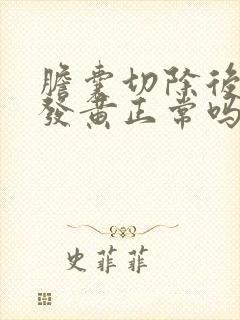 膽囊切除後
發黃正常嗎
史菲菲